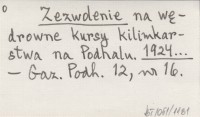 o
Zezwolenie na wę-
drowne kursy kilimkar-
stwa na Podhalu. 1924...
– Gaz. Podh. 12, nr 16.